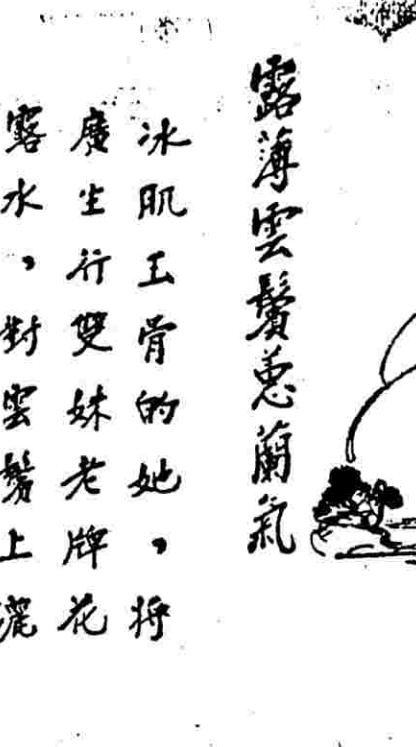 露薄雲鬢蕙蘭氣
冰肌玉骨的她，將
廣生行雙妹老牌花
露水，對雲鬢上灑